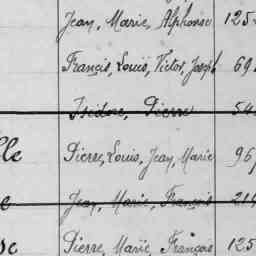 Jean, Marie, Alphonse 125
Francis, Louis, Victor, Joseph 69
Isidore, Pierre 54
lle Pierre, Louis, Jean, Marie 96
e Jean, Marie, François 214
se Pierre, Marie, François 125